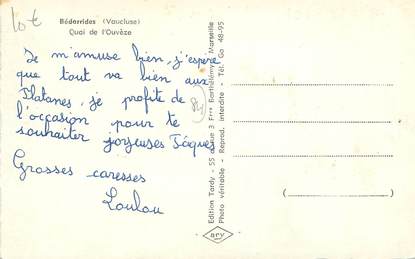 10 €
Bédarrides (Vaucluse)
Quai de l'Ouvèze
Je m'amuse bien, j'espère
que tout va bien aux
Platanes, je profite de
l'occasion pour te
souhaiter joyeuses Pâques
Grosses caresses
Loulou
84
Edition Tardy - 55 avenue 3 Frères Barthélemy - Marseille
Photo véritable - Reprod. interdite - Tél. Ga 48-95